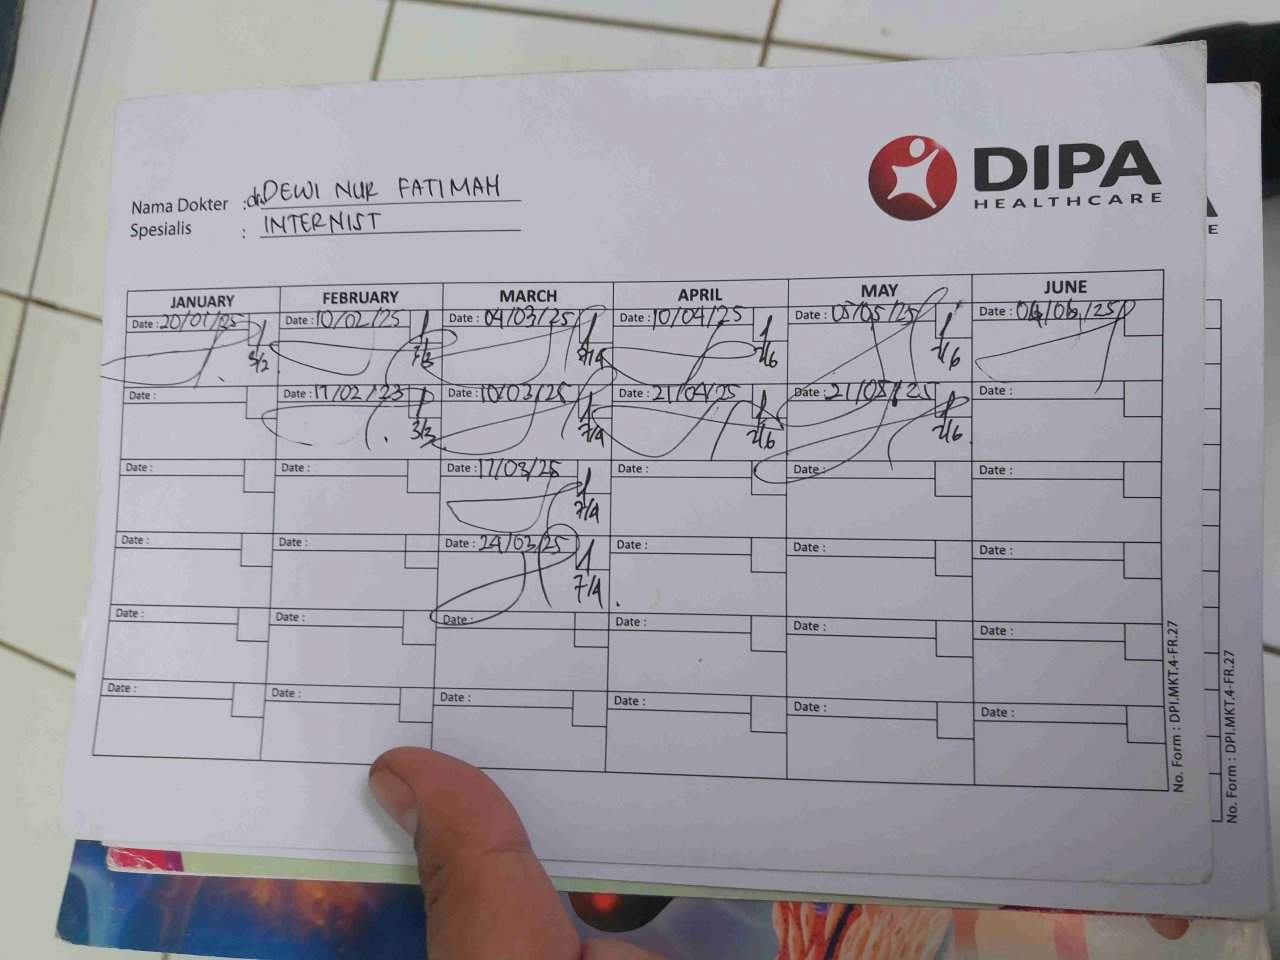 DIPA
HEALTHCARE
Nama Dokter : dr. DEWI NUR FATIMAH
Spesialis : INTERNIST
JANUARY FEBRUARY MARCH APRIL MAY JUNE
Date : 20/01/25 Date : 10/02/25 Date : 04/03/25 Date : 10/04/25 Date : 05/05/25 Date : 04/06/25
3/2 7/4 2/6 2/6
Date : Date : 17/02/23 Date : 10/03/25 Date : 21/04/25 Date : 21/05/25 Date :
3/3 7/4 2/6 2/6
Date : Date : Date : 17/03/25 Date : Date : Date :
7/4
Date : Date : Date : 24/03/25 Date : Date : Date :
7/4
Date : Date : Date : Date : Date : Date :
Date : Date : Date : Date : Date : Date :
No. Form : DPI.MKT.4-FR.27
No. Form : DPI.MKT.4-FR.27
E